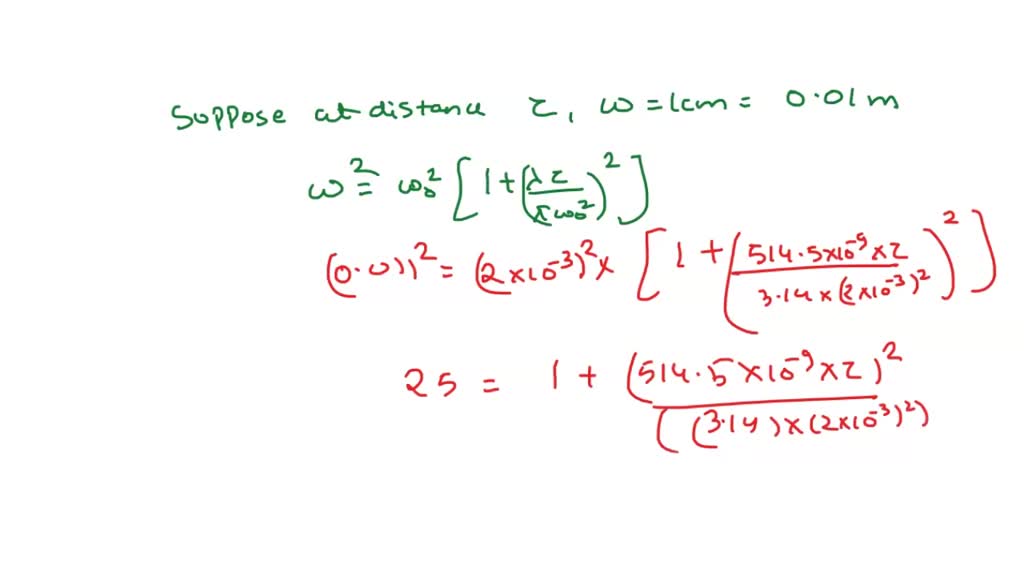 Suppose at distance z, ω = 1cm = 0.01 m
ω² = ω₀² [1 + (λz / πω₀²)²]
(0.01)² = (2×10⁻³)² × [1 + (514.5×10⁻⁹×z / 3.14×(2×10⁻³)²)²]
25 = 1 + (514.5×10⁻⁹×z)² / ((3.14)×(2×10⁻³)²)